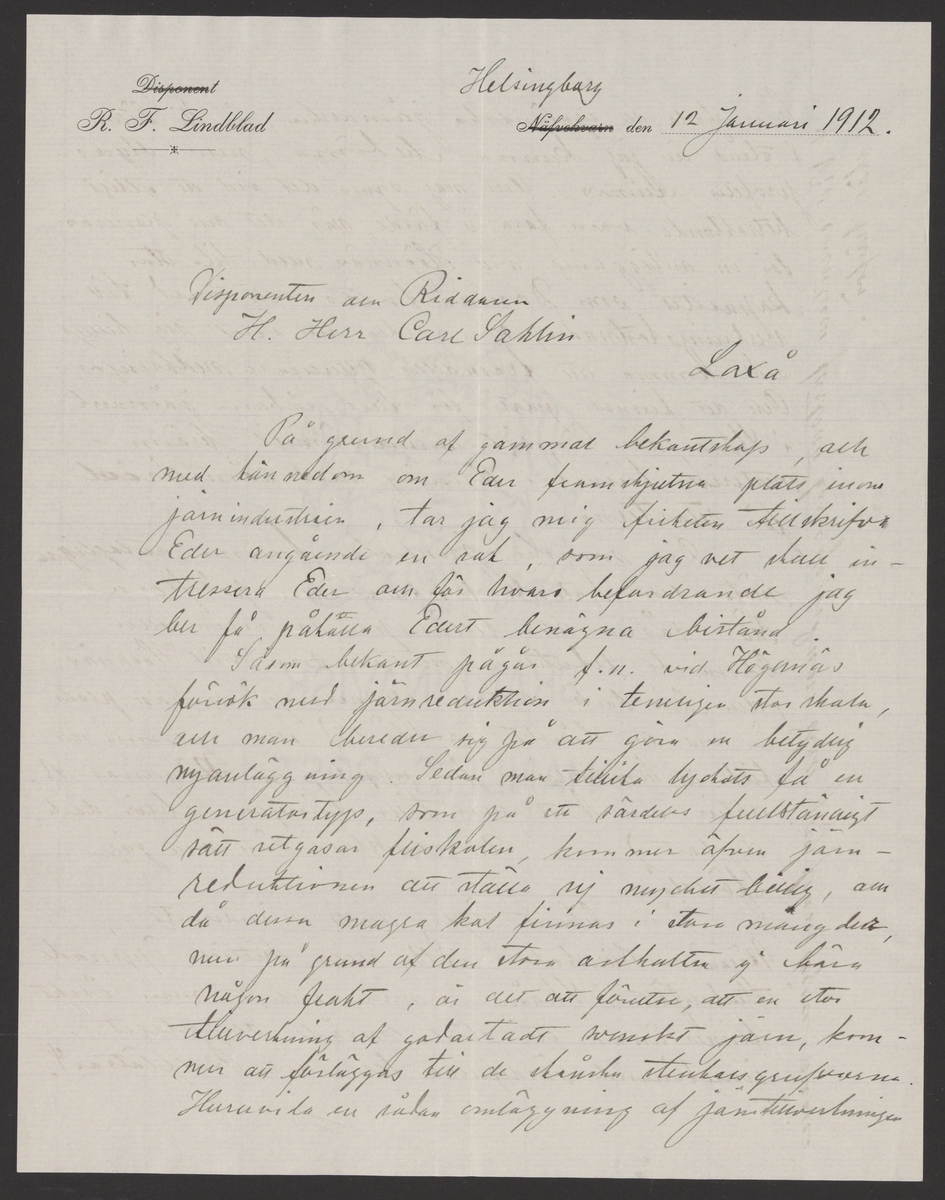 Disponent
R. F. Lindblad
Helsingborg
Näfvekvarn den 12 Januari 1912.
Disponenten och Riddaren
H. Herr Carl Sahlin
Laxå
På grund af gammal bekantskap, och
med kännedom om Eder framskjutna plats inom
järnindustrien, tar jag mig friheten tillskrifva
Eder angående en sak, som jag vet skall in-
tressera Eder och för hvars befordrande jag
ber få påkalla Edert benägna bistånd.
Såsom bekant pågår f.n. vid Höganäs
försök med järnreduktion i temligen stor skala,
och man bereder sig på att göra en betydlig
nyanläggning. Sedan man tillika lyckats få en
generatortyp, som på ett särdeles fullständigt
sätt utgasar fliskolen, kommer äfven järn-
reduktionen att ställa sig mycket billig, och
då dessa magra kol finnas i stora mängder,
men på grund af den stora askhalten ej bära
någon frakt, är det att förutse, att en stor
tillverkning af godartadt svenskt järn, kom-
mer att förläggas till de skånska stenkolsgrufvorna.
Huruvida en sådan omläggning af järntillverkningen